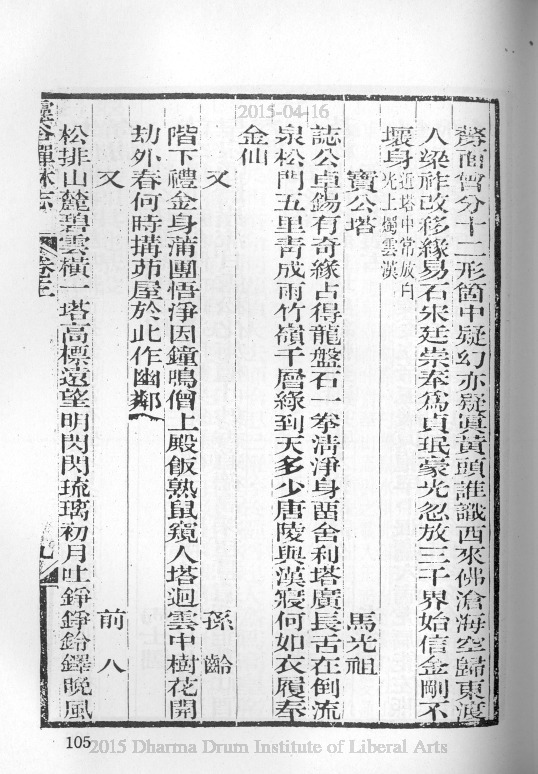 2015-04-16
剺面曾分十二形箇中疑幻亦疑眞黃頭誰識西來佛滄海空歸東渡
人梁祚改移緣易石宋廷崇奉爲貞珉豪光忽放三千界始信金剛不
壞身近塔中常放白光上燭雲漢
寶公塔 馬光祖
誌公卓錫有奇緣占得龍盤石一拳清淨身畱舍利塔廣長舌在倒流
泉松門五里靑成雨竹嶺千層綠到天多少唐陵與漢寢何如衣履奉
金仙
又 孫齡
階下禮金身蒲團悟淨因鐘鳴僧上殿飯熟鼠窺人塔迥雲中樹花開
劫外春何時搆茆屋於此作幽鄰
又 前人
松排山麓碧雲橫一塔高標遠望明閃閃琉璃初月吐錚錚鈴鐸晚風
靈谷禪林志 卷 九
105
2015 Dharma Drum Institute of Liberal Arts